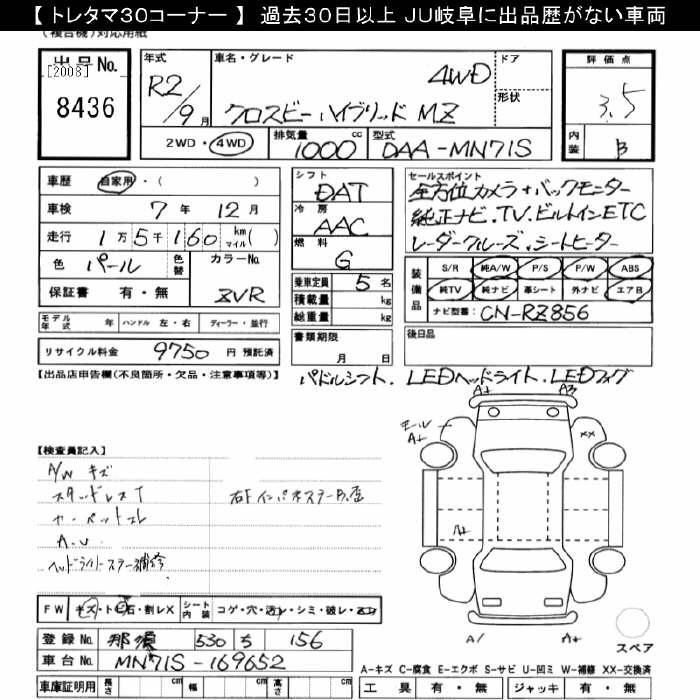 【 トレタマ30コーナー 】 過去30日以上 JU岐阜に出品歴がない車両
(複合機)対応用紙
出品No.
[2008]
8436
年式
R2/9月
車名・グレード
クロスビー ハイブリッド MZ
4WD
ドア
形状
2WD・4WD
排気量 1000 cc
型式 DAA-MN71S
評価点
3.5
内装 B
車歴 自家用・( )
車検 7年 12月
走行 1万5千160 km マイル( )
色 パール 色替 カラーNo.
保証書 有・無 ZVR
モデル年式 年 ハンドル 左・右 ディーラー・並行
リサイクル料金 9750 円 預託済
シフト
DAT
冷房
AAC
燃料
G
乗車定員 5 名
積載量 kg
総重量 kg
書類期限
月 日
セールスポイント
全方位カメラ+バックモニター
純正ナビ.TV.ビルトインETC
レーダークルーズ.シートヒーター
装備品
S/R 純A/W P/S P/W ABS
純TV 純ナビ 革シート 外ナビ エアB
ナビ型番: CN-RZ856
後日品
【出品店申告欄(不良箇所・欠品・注意事項等)】
パドルシフト. LEDヘッドライト.LEDフォグ
【検査員記入】
A/W キズ
スタッドレスT
カーペットヨレ
A.U.
ヘッドライトステー補修
モール
A+
A+
XX
A+
A/
A+
スペア
FW キズ・ト石・割レX シート内装 コゲ・穴・汚レ・シミ・破レ・スレ
登録No. 那須 530 ち 156
車台No. MN71S-169652
車庫証明用 長さ cm 幅 cm 高さ cm
A-キズ C-腐食 E-エクボ S-サビ U-凹ミ W-補修 XX-交換済
工具 有・無 ジャッキ 有・無